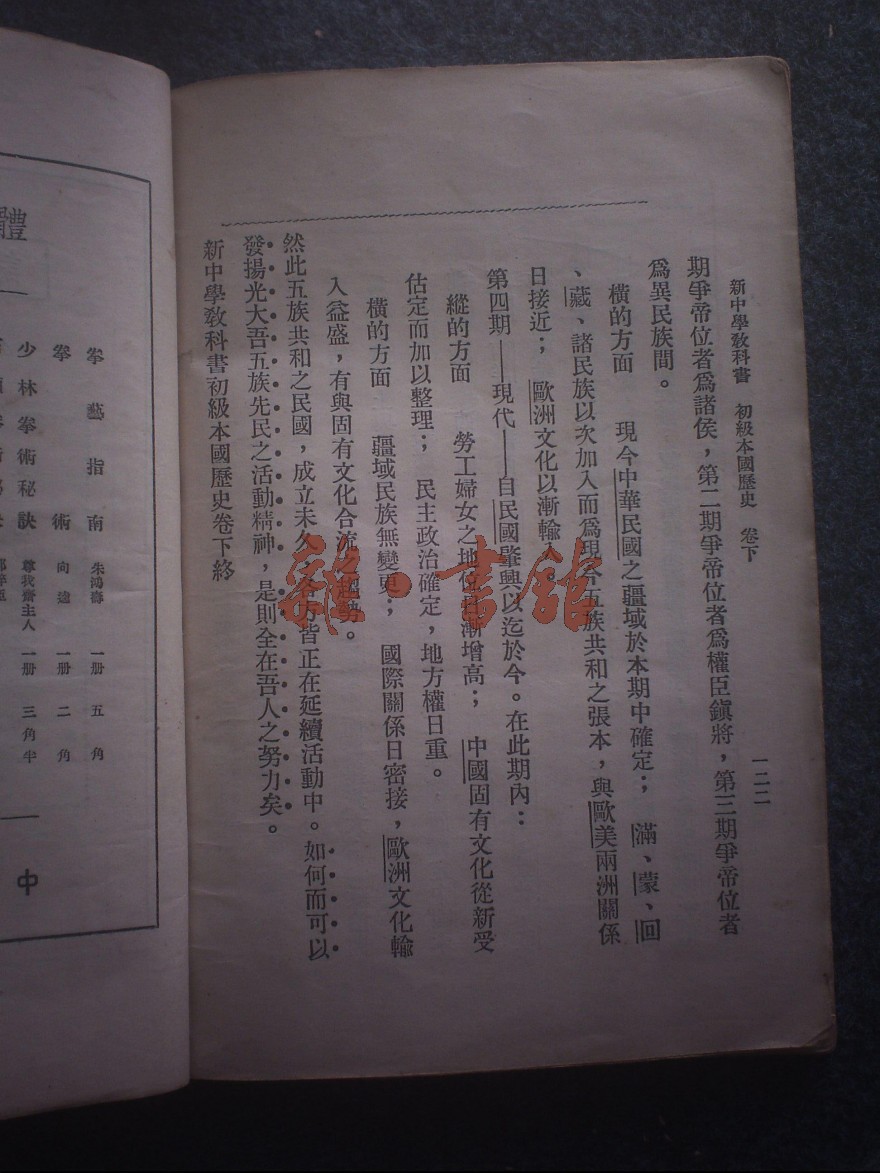 新中學敎科書　初級本國歷史　卷下
一二二
期爭帝位者爲諸侯，第二期爭帝位者爲權臣鎭將，第三期爭帝位者
爲異民族間。
橫的方面　現今中華民國之疆域於本期中確定；　滿、蒙、回
、藏、諸民族以次加入而爲現今五族共和之張本，與歐美兩洲關係
日接近；　歐洲文化以漸輸入。
第四期——現代——自民國肇興以迄於今。在此期內：
縱的方面　勞工婦女之地位日漸增高；　中國固有文化從新受
估定而加以整理；　民主政治確定，地方權日重。
橫的方面　疆域民族無變更；　國際關係日密接，歐洲文化輸
入益盛，有與固有文化合流之趨勢。
然此五族共和之民國，成立未久，各方皆正在延續活動中。如何而可以
發揚光大吾五族先民之活動精神，是則全在吾人之努力矣。
新中學敎科書初級本國歷史卷下終
雜·書館
體
拳藝指南　朱鴻壽　一册　五角
拳術　向逵　一册　二角
少林拳術秘訣　尊我齋主人　一册　三角半
中